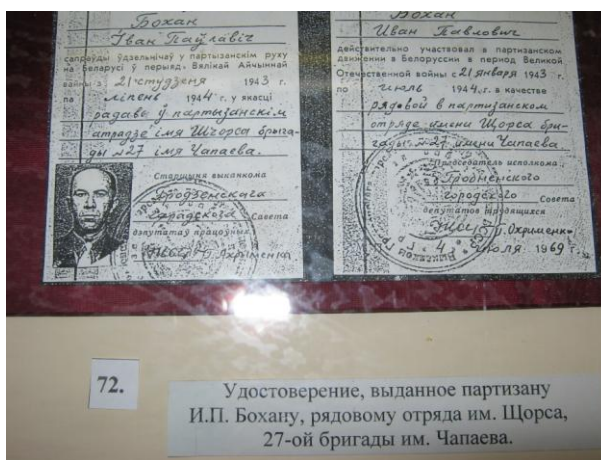 Бохан
Іван Паўлавіч
сапраўды ўдзельнічаў у партызанскім руху
на Беларусі ў перыяд Вялікай Айчыннай
вайны з 21 студзеня 1943 г.
па ліпень 1944 г. у якасці
радавы ў партызанскім
атрадзе імя Шчорса брыга-
ды №27 імя Чапаева.
Старшыня выканкома
Гродзенскага
гарадскога Совета
дэпутатаў працоўных
Охрименко
Бохан
Иван Павлович
действительно участвовал в партизанском
движении в Белоруссии в период Великой
Отечественной войны с 21 января 1943 г.
по июль 1944 г. в качестве
рядовой в партизанском
отряде имени Щорса бри-
гады №27 имени Чапаева.
Председатель исполкома
Гродненского
городского Совета
депутатов трудящихся
Охрименко
4 июля 1969 г.
72.
Удостоверение, выданное партизану
И.П. Бохану, рядовому отряда им. Щорса,
27-ой бригады им. Чапаева.